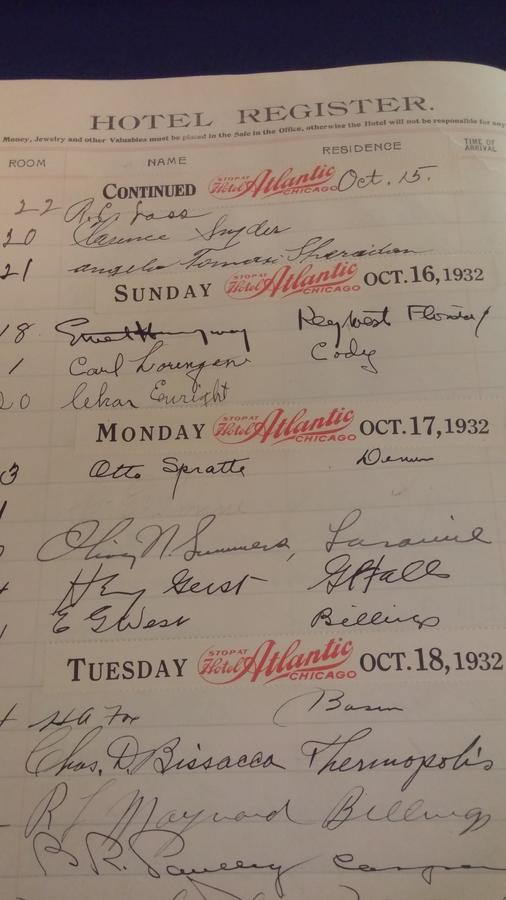 HOTEL REGISTER.
Money, Jewelry and other Valuables must be placed in the Safe in the Office, otherwise the Hotel will not be responsible for any
ROOM NAME RESIDENCE TIME OF ARRIVAL
CONTINUED STOP AT Hotel Atlantic CHICAGO Oct. 15.
22
20 Clarence Snyder
21 Sheridan
SUNDAY STOP AT Hotel Atlantic CHICAGO OCT. 16, 1932
18. Ernest Hemingway Key West Florida
1 Carl Lorenzen Cody
20 Enright
MONDAY STOP AT Hotel Atlantic CHICAGO OCT. 17, 1932
3 Otto Spratte Denver
N Summers, Laramie
Hy Geist Gt Falls
E G West Billings
TUESDAY STOP AT Hotel Atlantic CHICAGO OCT. 18, 1932
H A Fox Basin
Chas. D. Bissacca Thermopolis
R L Maynard Billings
B. R. Casper